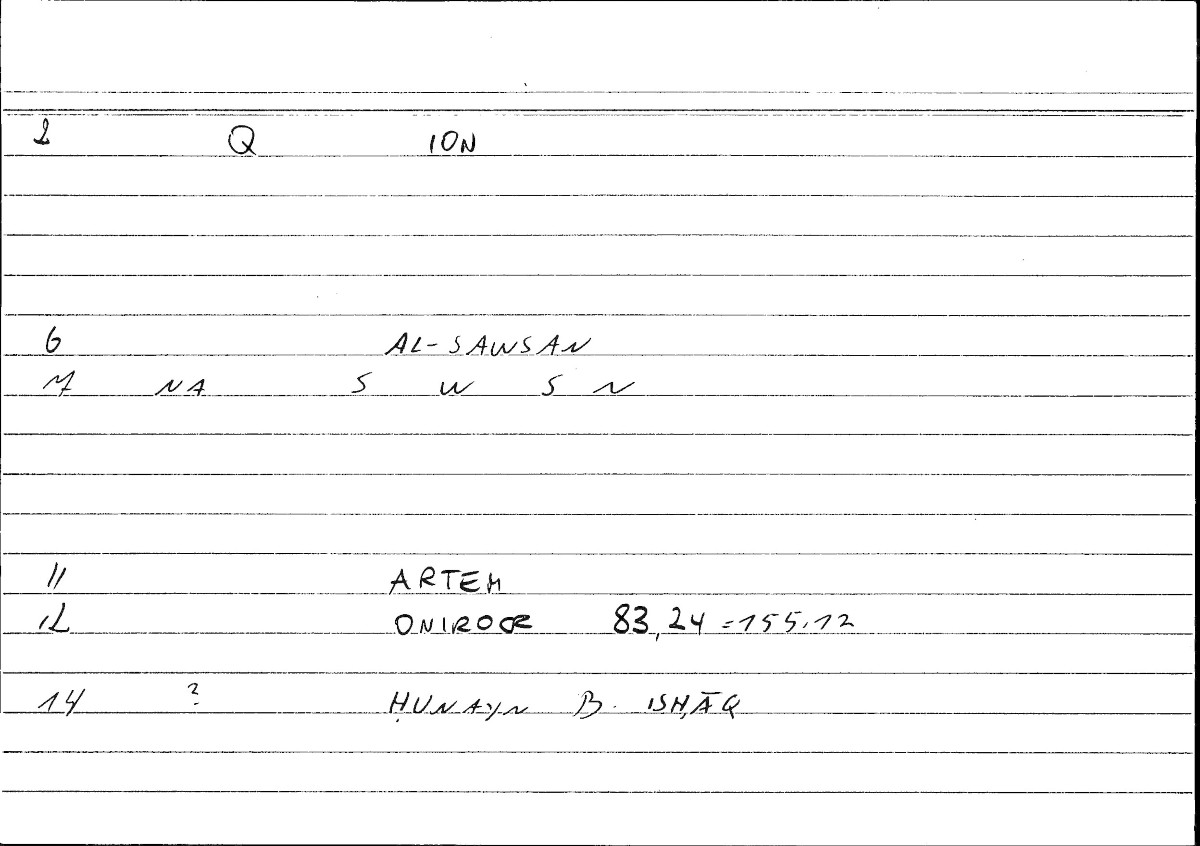 2 Q ION
6 AL-SAWSAN
7 NA S W S N
11 ARTEM
12 ONIROCR 83,24 =155,12
14 ? ḤUNAYN B. ISḤĀQ